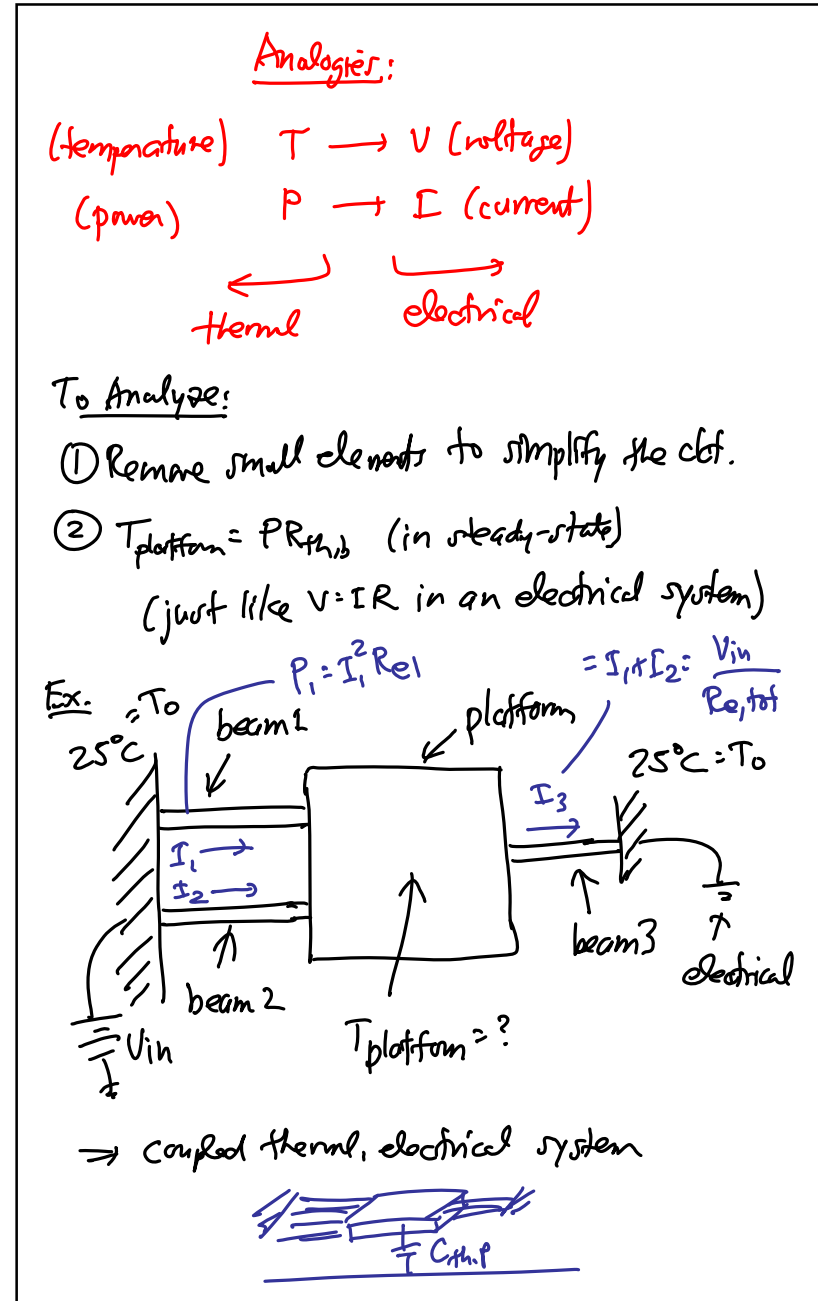 Analogies:
(temperature) T → V (voltage)
(power) P → I (current)
thermal electrical
To Analyze:
① Remove small elements to simplify the ckt.
② Tplatform = PRth,b (in steady-state)
(just like V=IR in an electrical system)
P₁ = I₁²Re1
= I₁+I₂ = Vin / Re,tot
Ex.
=T₀
25°C
beam1
platform
25°C = T₀
I₃
I₁ →
I₂ →
beam 2
beam3
electrical
Vin
Tplatform = ?
⇒ coupled thermal, electrical system
Cth,p